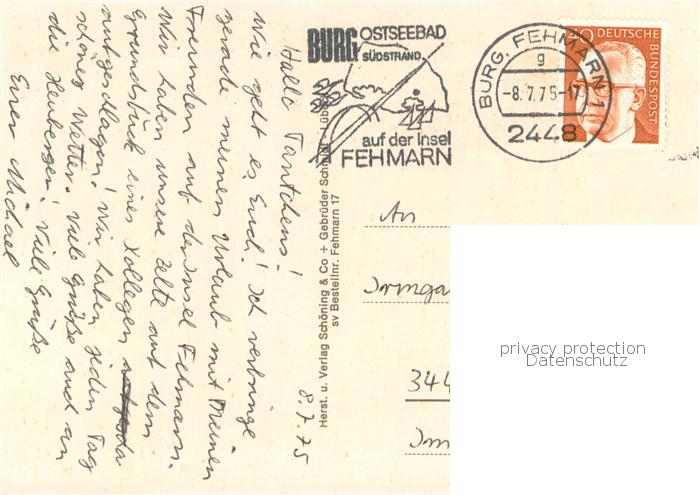 Hallo Tantchens!
Wie geht es Euch! Ich verbringe
gerade meinen Urlaub mit meinen
Freunden auf der Insel Fehmarn.
Wir haben unsere Zelte auf dem
Grundstück eines Kollegen
aufgeschlagen! Wir haben jeden Tag
schönes Wetter. Viele Grüße auch an
die Heuberger! Viele Grüße
Euer Michael
8.7.75
Herst. u. Verlag Schöning & Co + Gebrüder Schmidt
sv Bestellnr. Fehmarn 17
BURG OSTSEEBAD
SÜDSTRAND
auf der Insel
FEHMARN
BURG, FEHMARN 1
g
-8.7.75-17
2448
40 DEUTSCHE
BUNDESPOST
An
Irmga
344
Im
privacy protection
Datenschutz